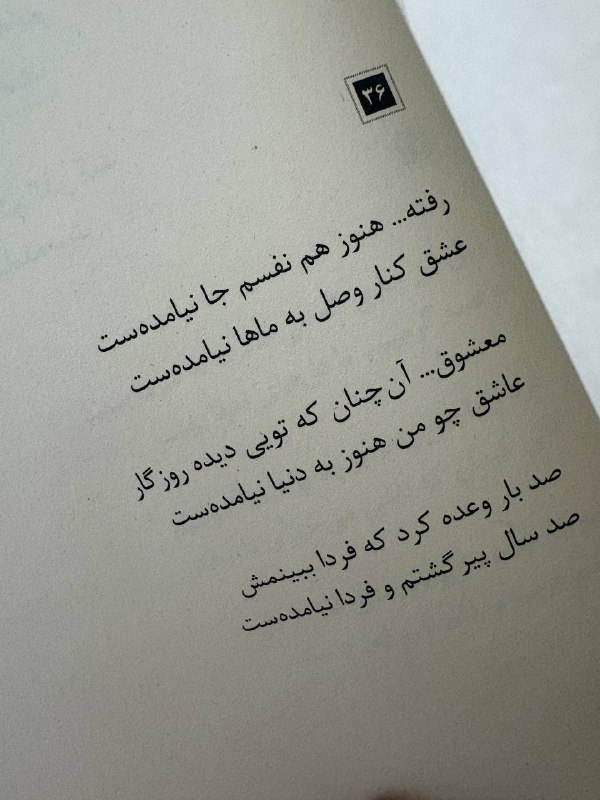 ۳۶
رفته... هنوز هم نفسم جا نیامده‌ست
عشق کنار وصل به ماها نیامده‌ست
معشوق... آن‌چنان که تویی دیده روزگار
عاشق چو من هنوز به دنیا نیامده‌ست
صد بار وعده کرد که فردا ببینمش
صد سال پیر گشتم و فردا نیامده‌ست